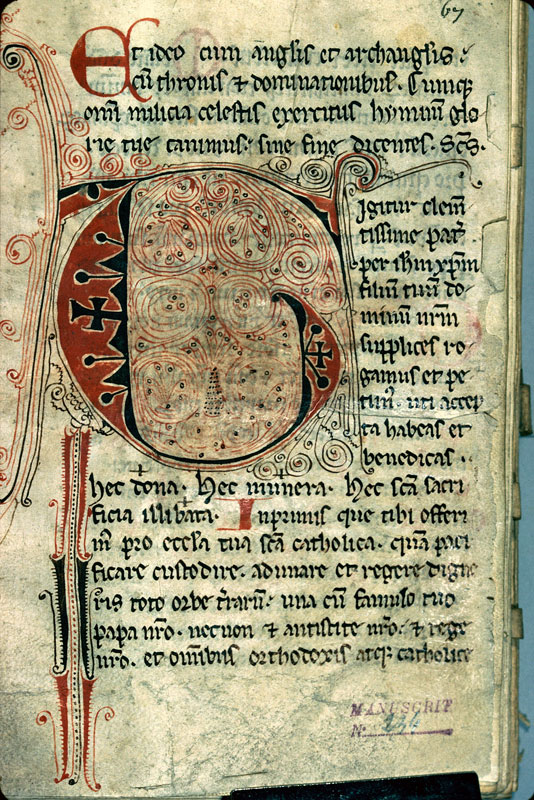 67
Et ideo cum anglis et archanglis.
cū thronis ⁊ dominationibus. Cumq;
omī milicia celestis exercitus hymnū glo
rie tue canimus. sine fine dicentes. Scs.
Te
igitur clem̄
tissime pat̄
per ihm xp̄m
filium tuū do
minum nr̄m
supplices ro
gamus et pe
tim̄. uti accep
ta habeas et
benedicas.
hec dona. hec munera. hec scā sacri
ficia illibata. Inprimis que tibi offeri
m̄ pro ecclsa tua scā catholica. quā paci
ficare custodire. adunare et regere digne
ris toto orbe t̄rarū. una cū famulo tuo
papa nr̄o. necnon ⁊ antistite nr̄o. ⁊ rege
nr̄o. et omībus orthodoxis atq; catholice
MANUSCRIT
N.